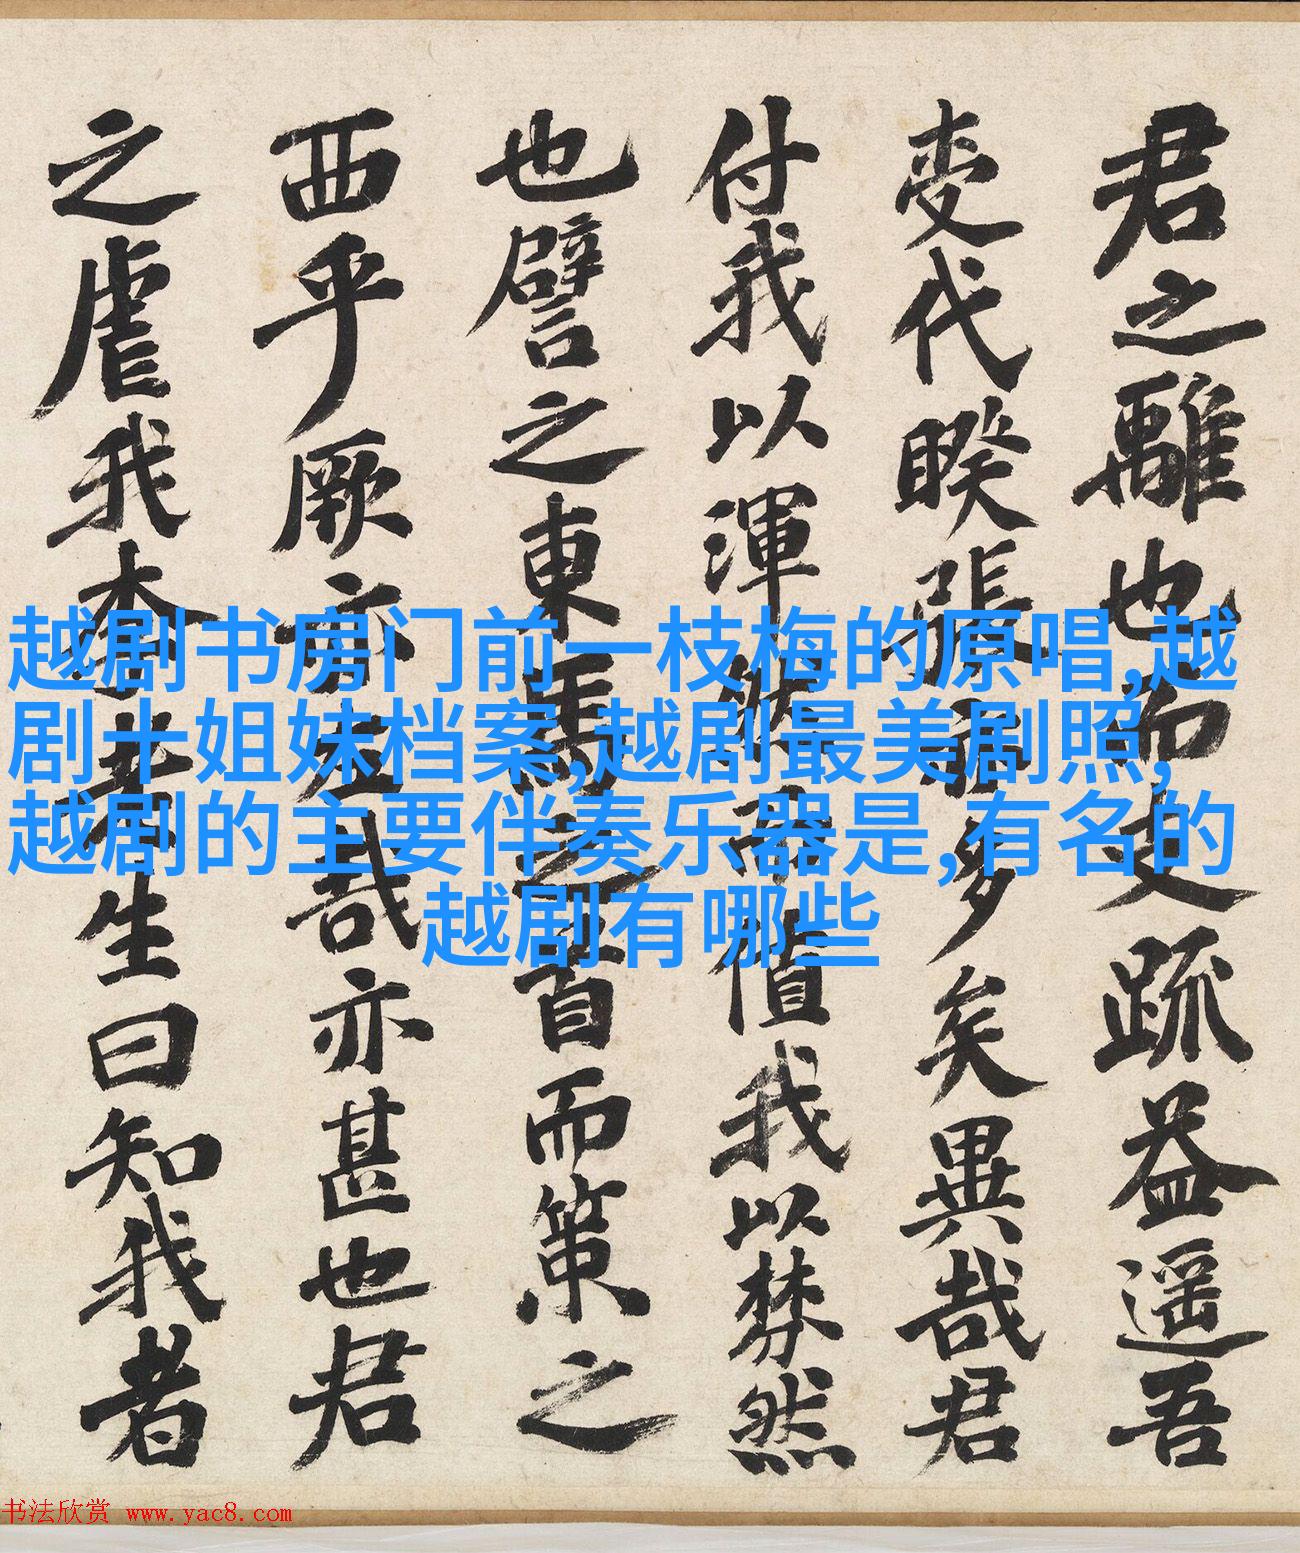 君之離也而疏益遥吾
代睽張多矣異哉君
付我以渾然而值我以棼然
也譬之東馬之首而策之
西乎厥亦左哉亦甚也君
之虐我生曰知我者
越剧书房门前一枝梅的原唱,越
剧十姐妹档案,越剧最美剧照,
越剧的主要伴奏乐器是,有名的
越剧有哪些
书法欣赏 www.yac8.com